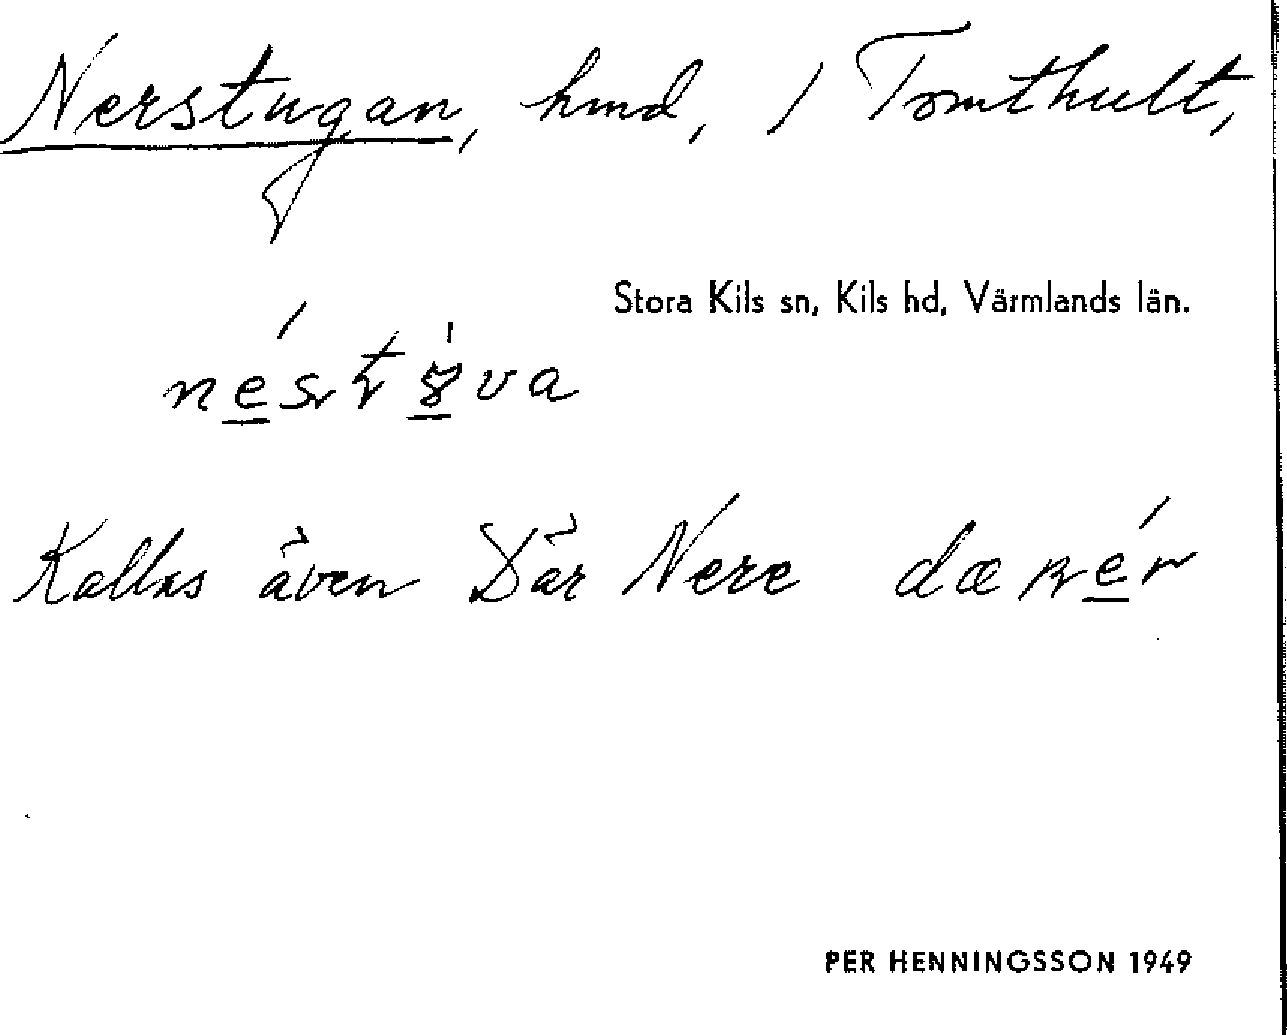 Nerstugan, hmd, i Tomthult,
Stora Kils sn, Kils hd, Värmlands län.
Kallas även Där Nere
PER HENNINGSSON 1949